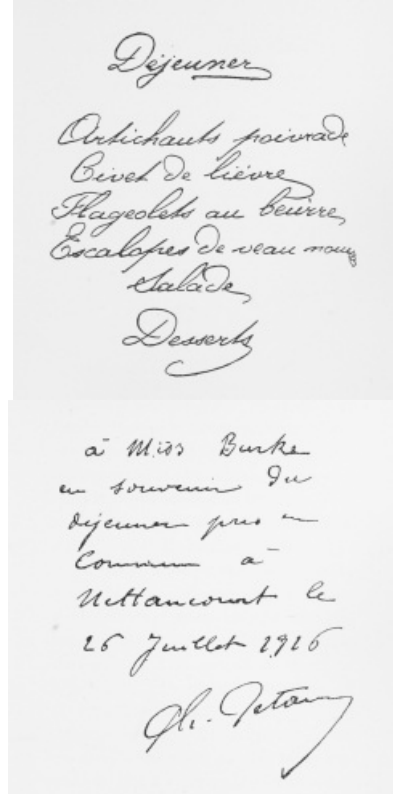 Déjeuner
Artichauts poivrade
Civet de lièvre
Flageolets au beurre
Escalopes de veau
Salade
Desserts
à Miss Burke
en souvenir du
déjeuner pris en
Commun à
Nettancourt le
26 Juillet 1916
Ph. Pétain